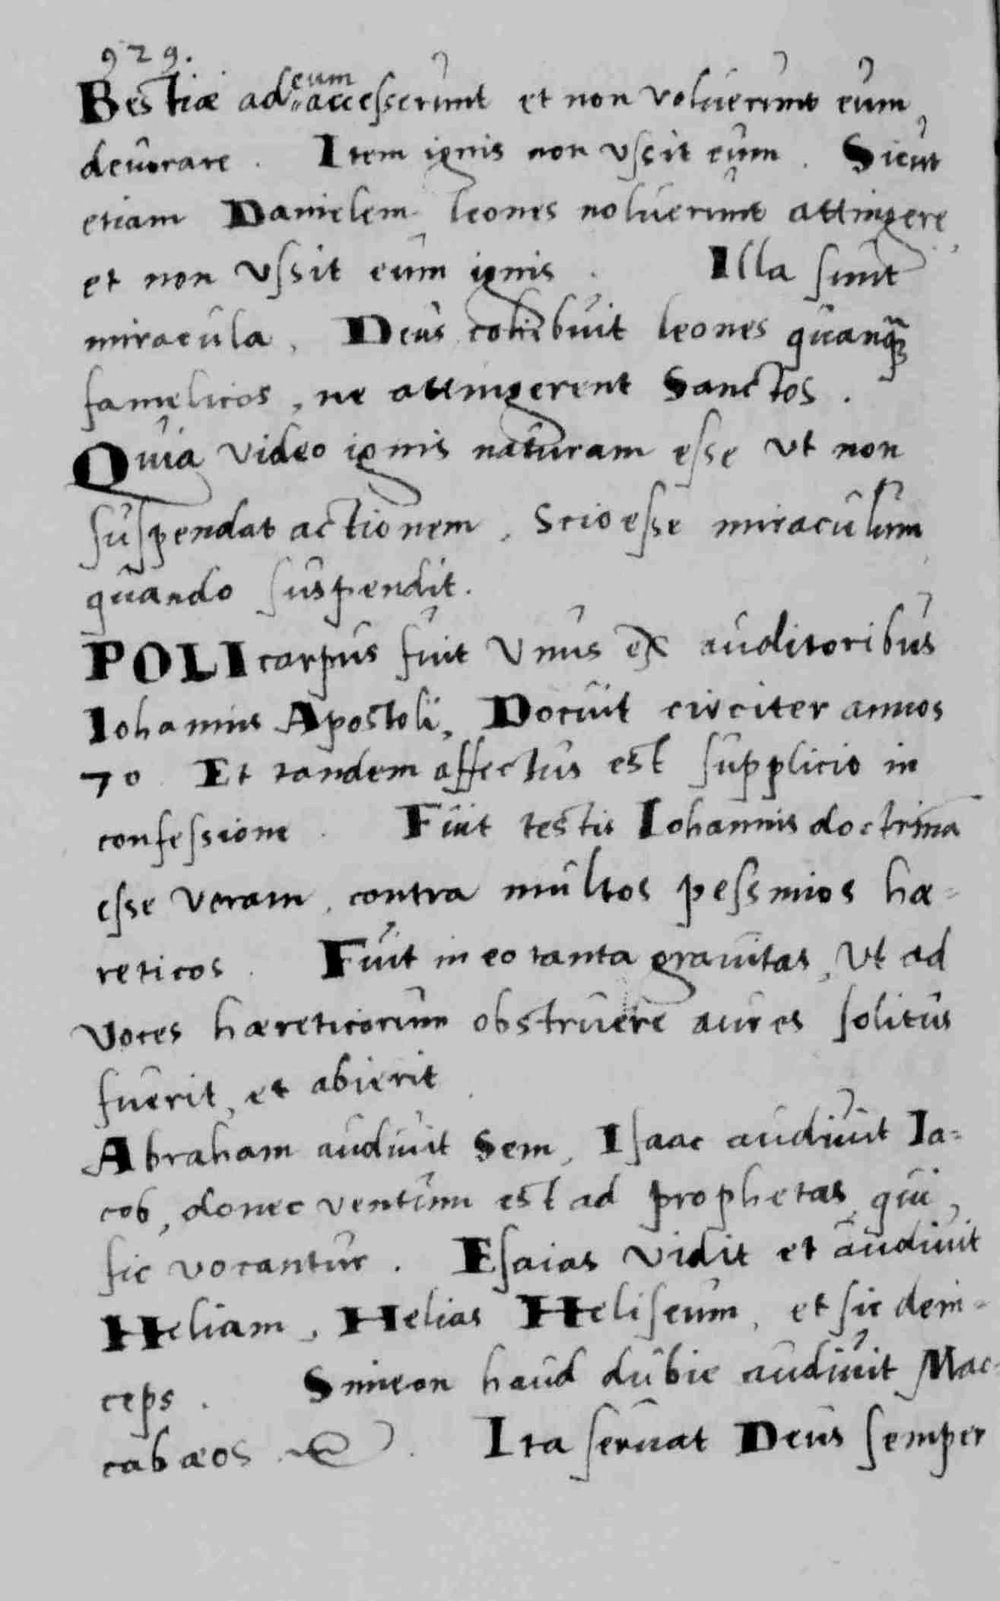 929.
Bestiæ ad eum accesserunt et non voluerunt eum
devorare. Item ignis non ussit eum. Sicut
etiam Danielem leones noluerunt attingere
et non ussit eum ignis. Illa sunt
miracula. Deus cohibuit leones quanq̃ꝫ
famelicos, ne attingerent Sanctos.
Quia video ignis naturam esse ut non
suspendat actionem, Scio esse miraculum
quando suspendit.
POLIcarpus fuit Unus ex auditoribus
Iohannis Apostoli, Docuit circiter annos
70 Et tandem affectus est supplicio in
confessione. Fuit testis Iohannis doctrinã
esse veram, contra multos pessimos hæ-
reticos. Fuit in eo tanta gravitas, Ut ad
voces hæreticorum obstruere aures solitus
fuerit, et abierit
Abraham audivit Sem, Isaac audivit Ia-
cob, donec ventum est ad prophetas, qui
sic vocantur. Esaias vidit et audivit
Heliam, Helias Heliseum, et sic dein-
ceps. Simeon haud dubie audivit Mac-
cabæos. Ita servat Deus semper